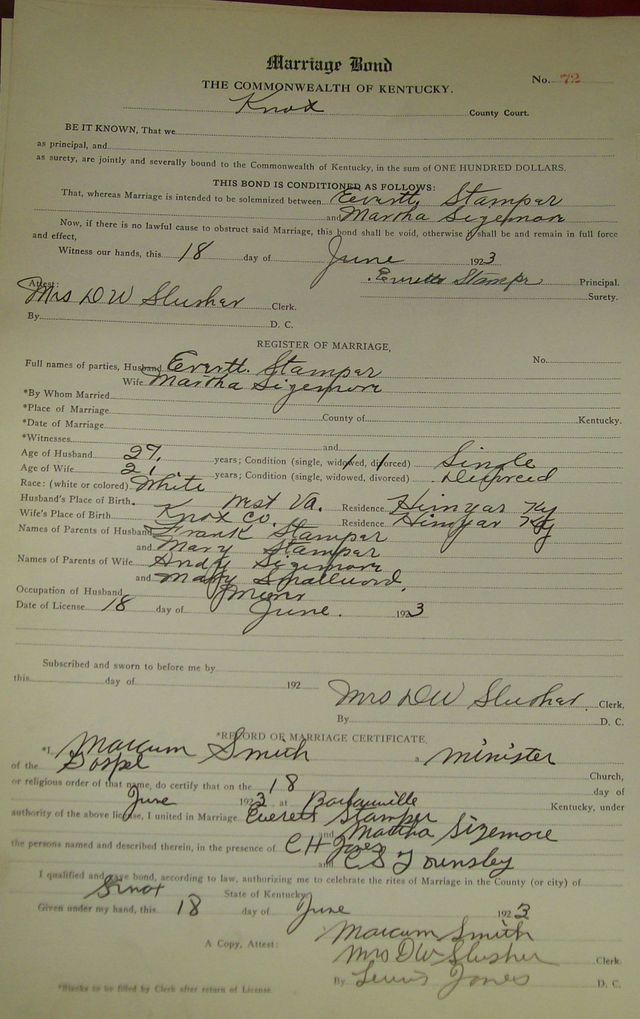 Marriage Bond
No. 72
THE COMMONWEALTH OF KENTUCKY.
Knox County Court.
BE IT KNOWN, That we
as principal, and
as surety, are jointly and severally bound to the Commonwealth of Kentucky, in the sum of ONE HUNDRED DOLLARS.
THIS BOND IS CONDITIONED AS FOLLOWS:
That, whereas Marriage is intended to be solemnized between Everett Stamper
and Martha Sizemore
Now, if there is no lawful cause to obstruct said Marriage, this bond shall be void, otherwise it shall be and remain in full force
and effect,
Witness our hands, this 18 day of June 1923
Everett Stamper Principal.
Attest: Surety.
Mrs D W Slusher Clerk.
By D. C.
REGISTER OF MARRIAGE,
Full names of parties, Husband Everett Stamper No.
Wife Martha Sizemore
*By Whom Married
*Place of Marriage County of Kentucky.
*Date of Marriage
*Witnesses and
Age of Husband 27, years; Condition (single, widowed, divorced) Single
Age of Wife 21 years; Condition (single, widowed, divorced) Divorced
Race: (white or colored) White
Husband's Place of Birth West Va. Residence Himyar Ky
Wife's Place of Birth Knox Co. Residence Himyar Ky
Names of Parents of Husband Frank Stamper
and Mary Stamper
Names of Parents of Wife Andy Sizemore
and Mary Smallwood,
Occupation of Husband Miner
Date of License 18 day of June. 1923
Subscribed and sworn to before me by
this day of 192
Mrs D W Slusher Clerk,
By D. C.
*RECORD OF MARRIAGE CERTIFICATE,
*I, Marcum Smith a minister
of the Gospel Church,
or religious order of that name, do certify that on the 18 day of
June 1923 at Barbourville Kentucky, under
authority of the above license, I united in Marriage Everett Stamper
and Martha Sizemore
the persons named and described therein, in the presence of C H Jones
and
I qualified and gave bond, according to law, authorizing me to celebrate the rites of Marriage in the County (or city) of
Knox State of Kentucky
Given under my hand, this 18 day of June 1923
Marcum Smith
A Copy, Attest: Mrs D W Slusher Clerk.
By Lewis Jones D. C.
*Blanks to be filled by Clerk after return of License.